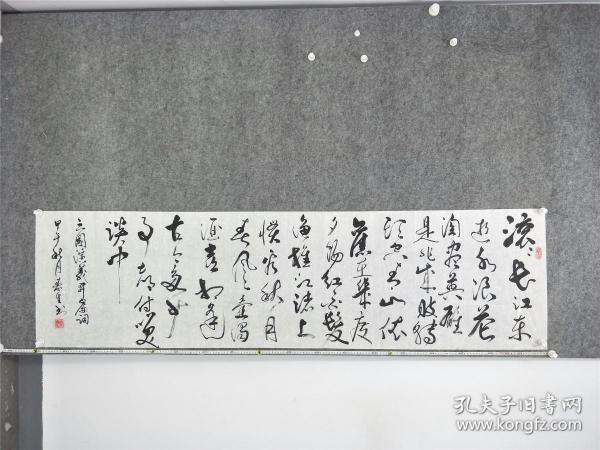 滚〻长江东
逝水浪花
淘尽英雄
是非成败转
头空青山依
舊在几度
夕阳红白髮
渔樵江渚上
惯看秋月
春风一壶浊
酒喜相逢
古今多少
事都付笑
谈中
三国演义开篇词
甲午秋月书
孔夫子旧书网
www.kongfz.com